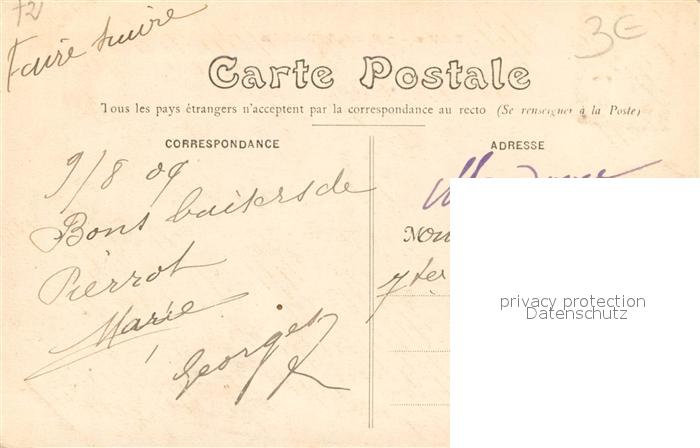 72
Faire suivre
3€
Carte Postale
Tous les pays étrangers n'acceptent par la correspondance au recto (Se renseigner à la Poste)
CORRESPONDANCE
ADRESSE
9/8 09
Bons baisers de
Pierrot
Marie
Georges
7 ter
privacy protection
Datenschutz